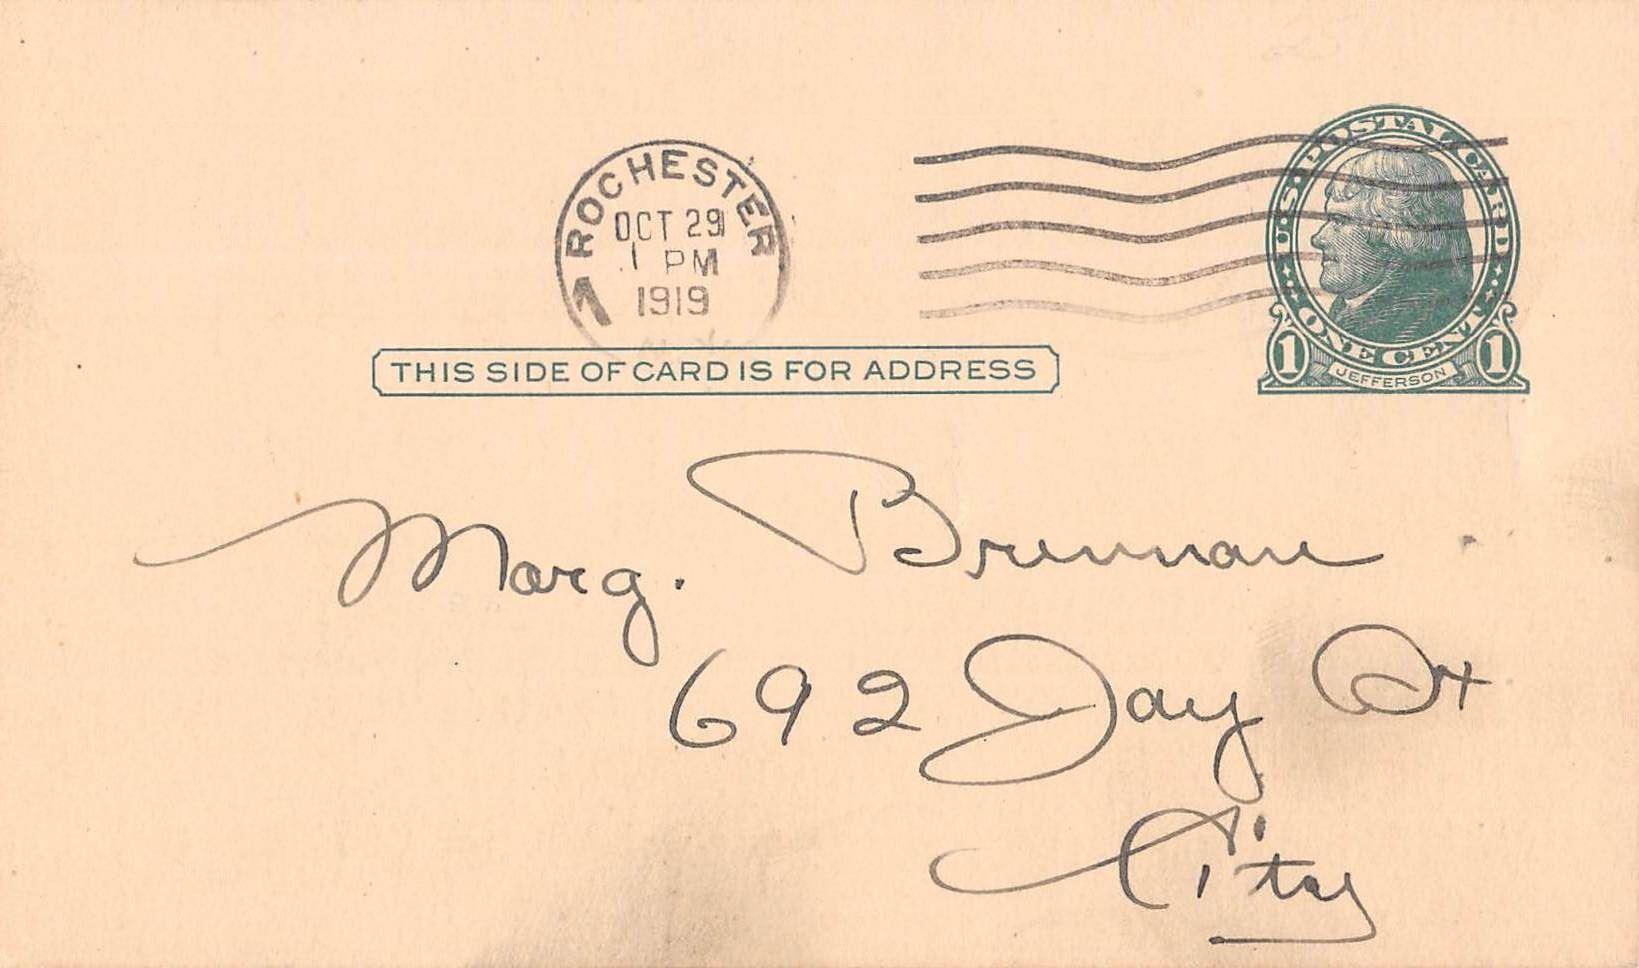 U.S. POSTAL CARD
ROCHESTER
OCT 29
1 PM
1919
ONE CENT
1 JEFFERSON 1
THIS SIDE OF CARD IS FOR ADDRESS
Marg. Brennan
692 Jay St
City